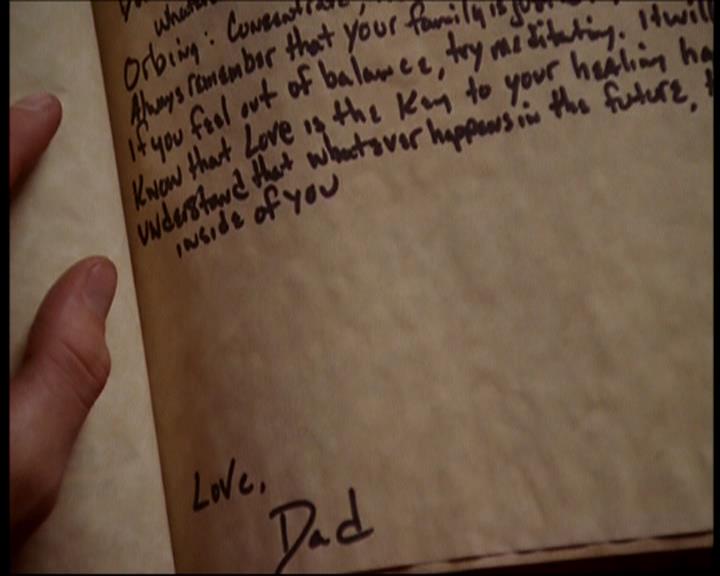 whatever
Orbing: Concentrate,
Always remember that your family is just
If you feel out of balance, try meditating. It will
Know that Love is the Key to your healing
understand that whatever happens in the future,
inside of you
Love,
Dad